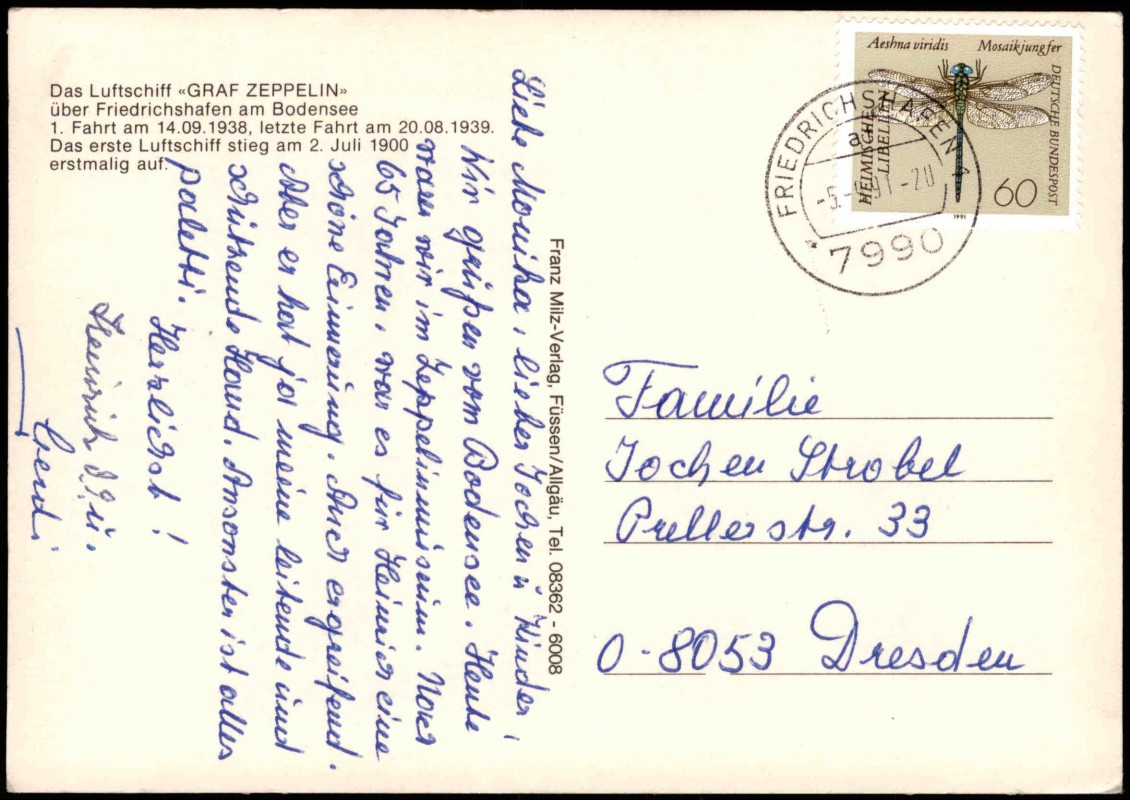 Das Luftschiff «GRAF ZEPPELIN»
über Friedrichshafen am Bodensee
1. Fahrt am 14.09.1938, letzte Fahrt am 20.08.1939.
Das erste Luftschiff stieg am 2. Juli 1900
erstmalig auf.
Liebe Monika, lieber Jochen u Kinder!
Wir grüßen vom Bodensee. Heute
waren wir im Zeppelinmuseum. Nach
65 Jahren, war es für Heinrich eine
schöne Erinnerung. Auch ergreifend.
Aber er hat ja meine leitende und
schützende Hand. Ansonsten ist alles
paletti. Herzlichst!
Heinrich
Gerdi
Franz Milz-Verlag, Füssen/Allgäu, Tel. 08362 - 6008
Aeshna viridis Mosaikjungfer
HEIMISCHE
LIBELLEN
DEUTSCHE BUNDESPOST
60
1991
FRIEDRICHSHAFEN 1
a
7990
Familie
Jochen Strobel
Prellerstr. 33
O-8053 Dresden